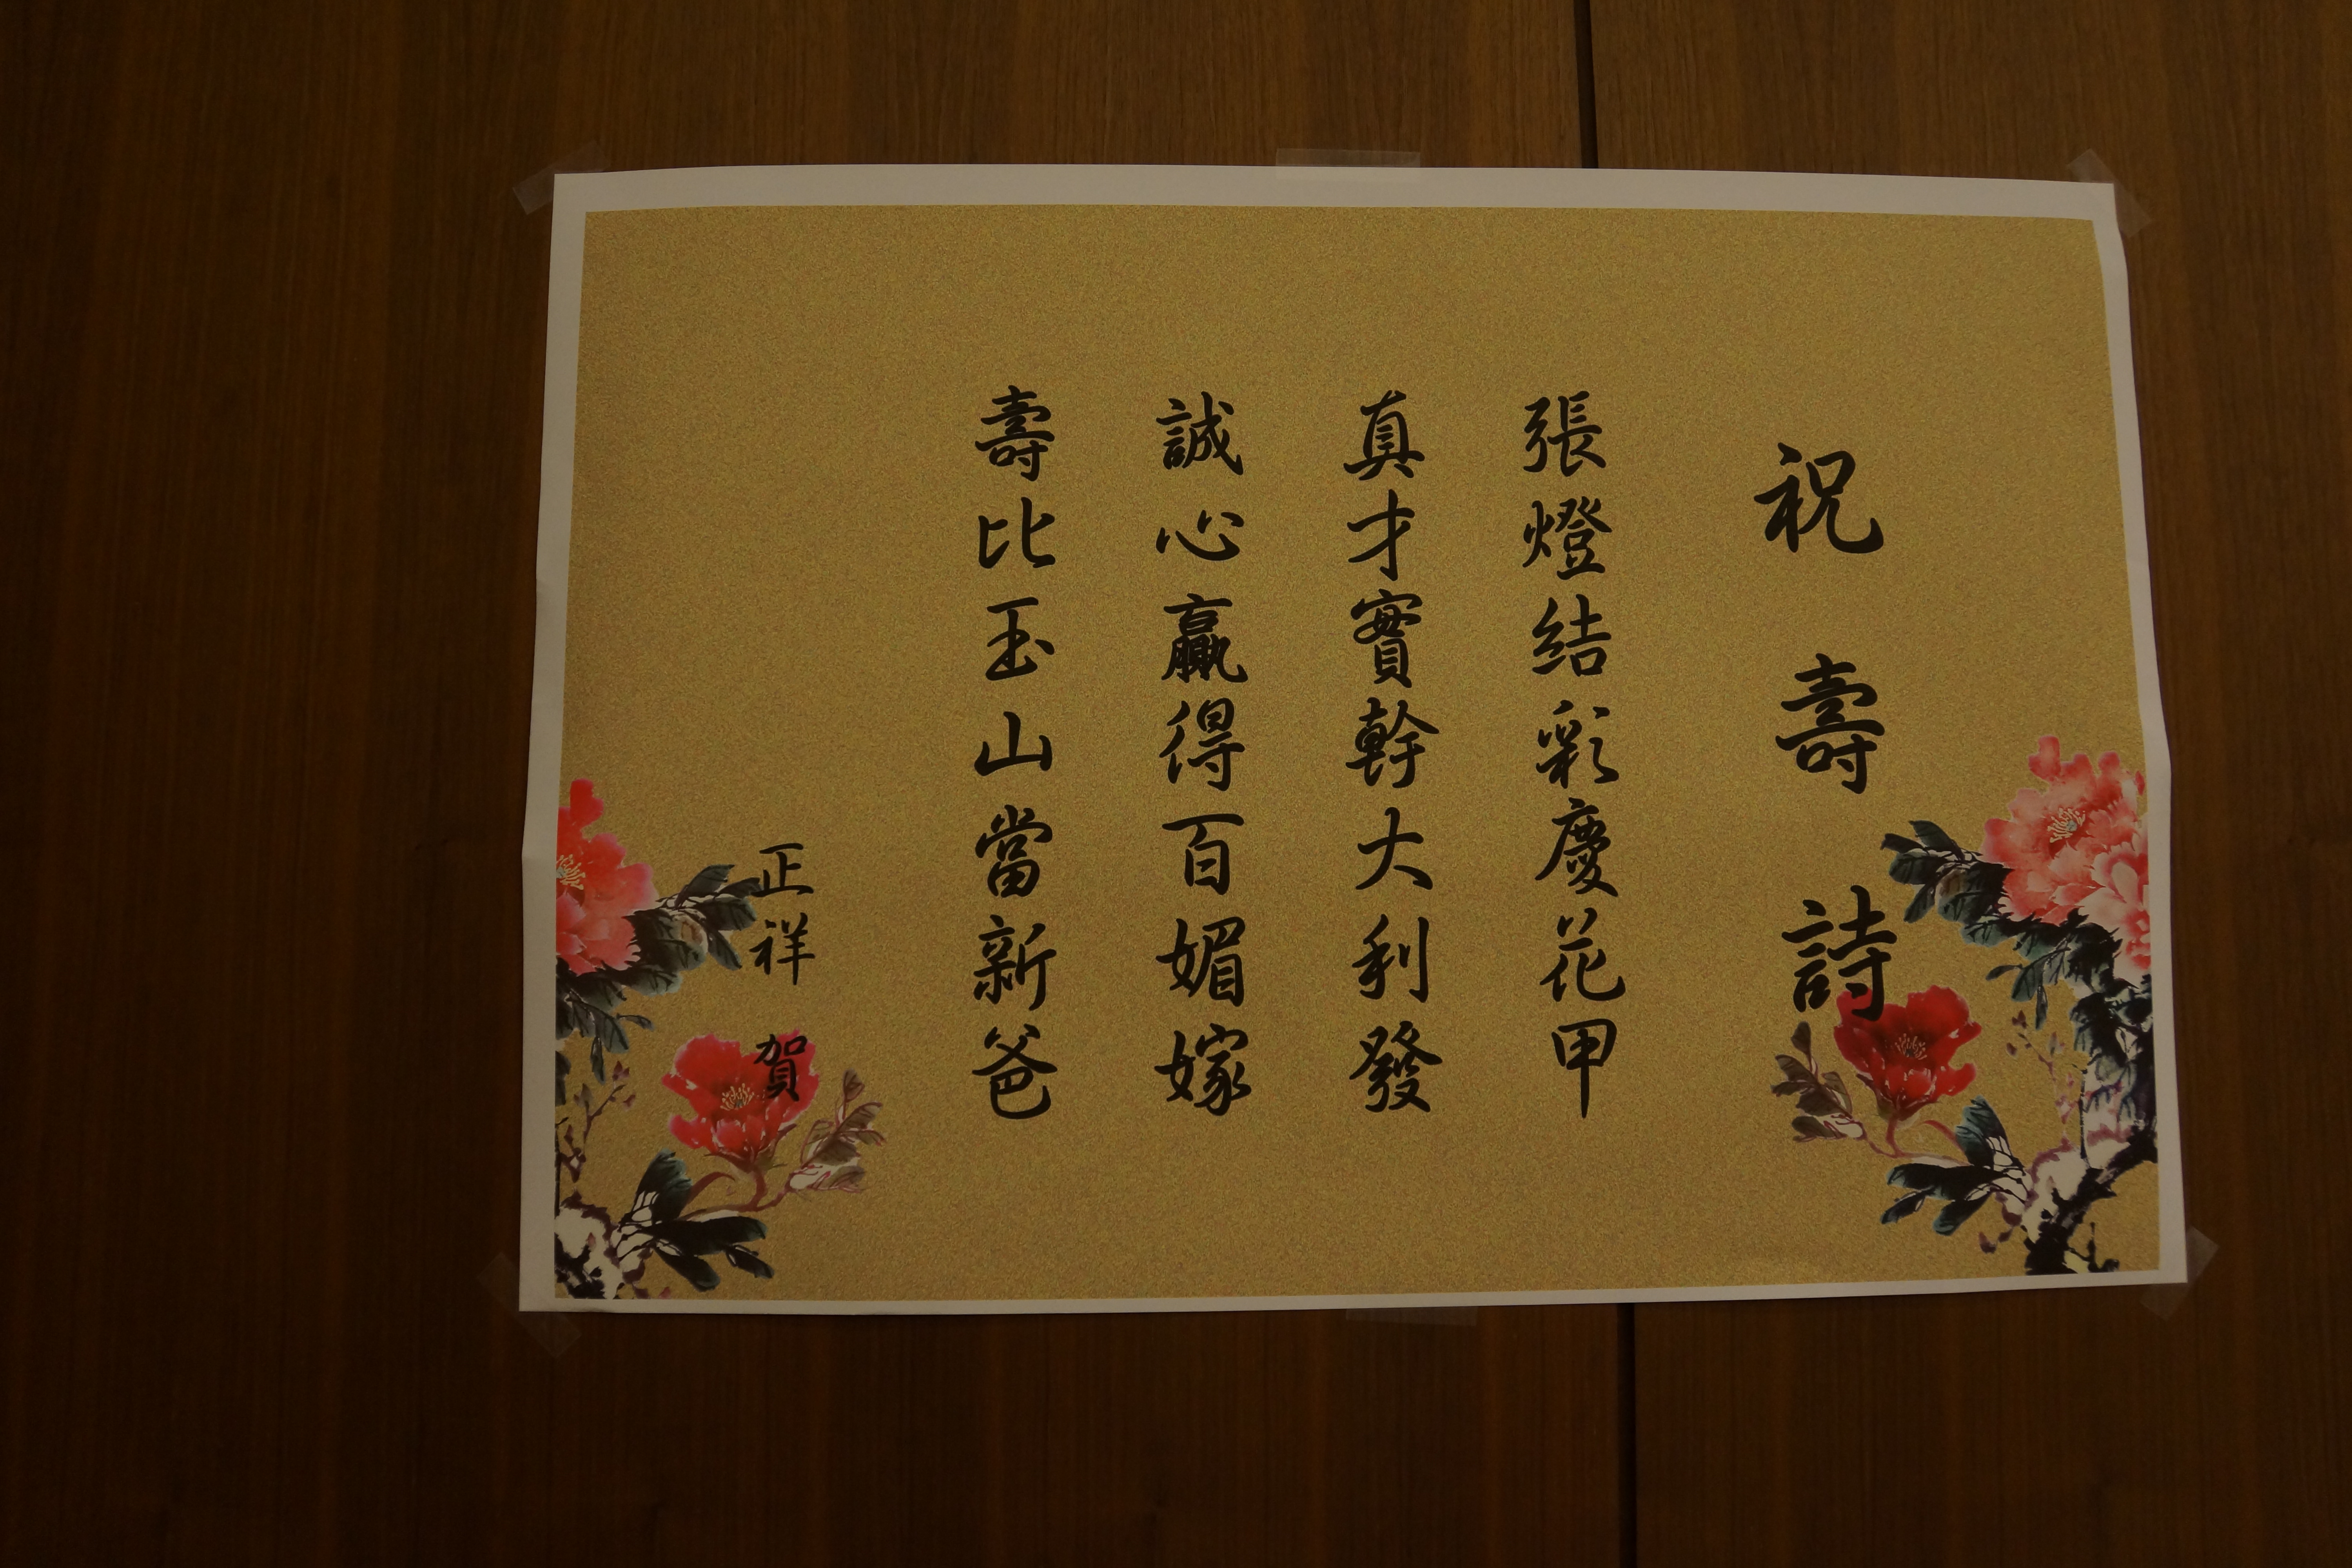 祝壽詩
張燈結彩慶花甲
真才實幹大利發
誠心贏得百媚嫁
壽比玉山當新爸
正祥 賀